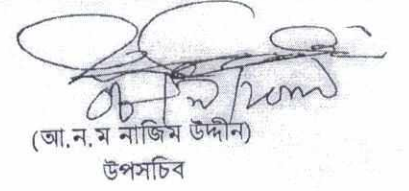 (আ.ন.ম নাজিম উদ্দীন)
উপসচিব